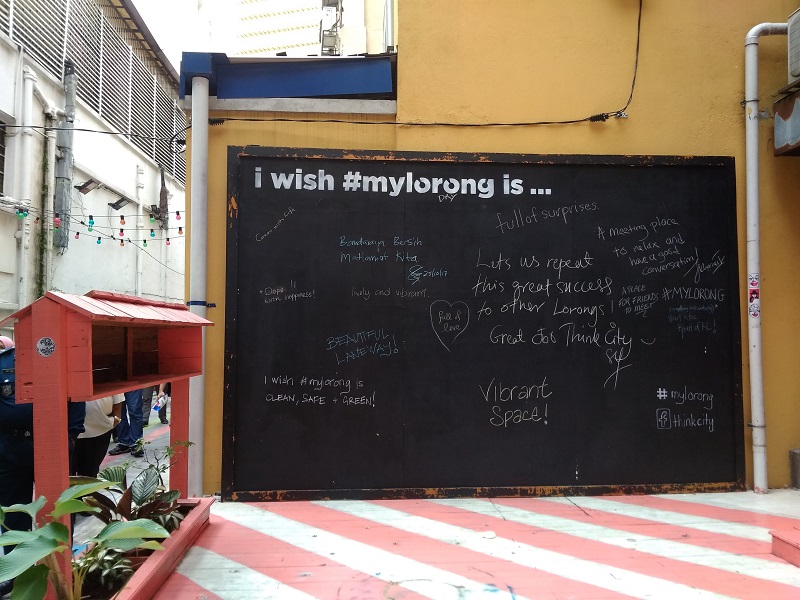 i wish #mylorong is ...
DAY
full of surprises.
A meeting place
to relax and
have a good
conversation!
Bandaraya Bersih
Matlamat Kita
25/10/17
Lets us repeat
this great success
to other Lorongs!
Great Job Think City
A PLACE
FOR FRIENDS
to MEET
#MYLORONG
with happiness!
lively and vibrant.
love
BEAUTIFUL
LANEWAY!
I wish #mylorong is
CLEAN, SAFE + GREEN!
Vibrant
Space!
# mylorong
f thinkcity